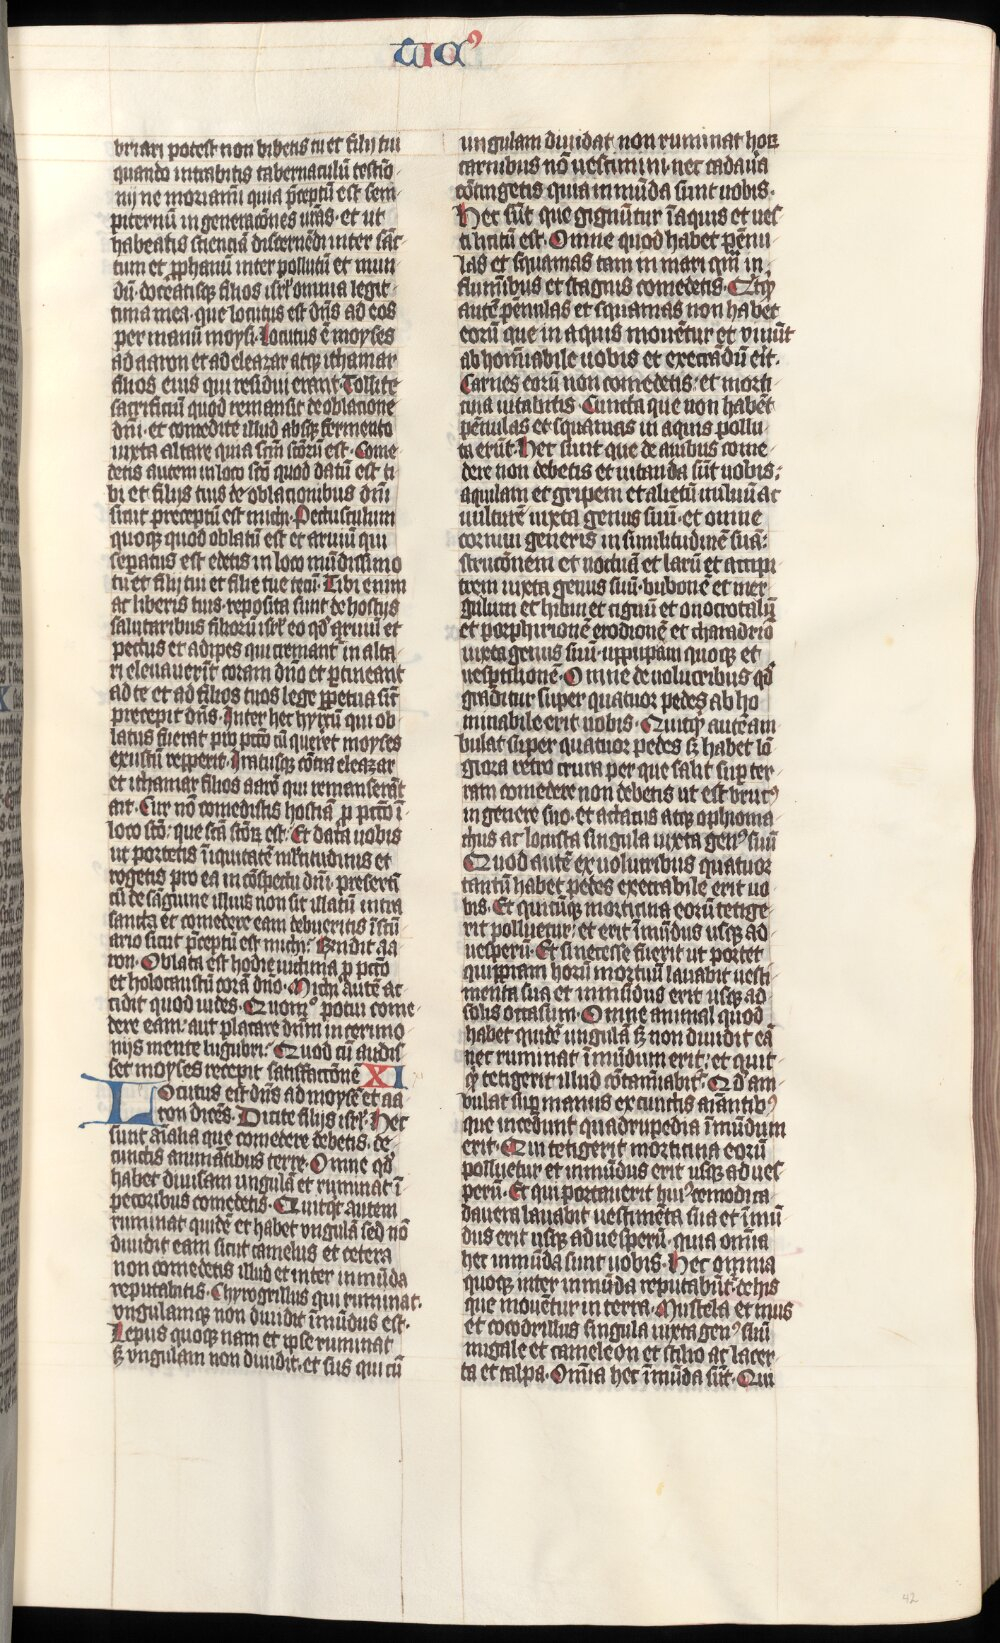 uicꝰ
briari potest non bibetis tu et filij tui
quando intrabitis tabernaculū testīo
nij ne moriamī quia p̄ceptū est sem
piternū in generatōnes vrās· et ut
habeatis scientiā discernēdi inter sāc
tum et ꝓphanū inter pollutū et mun
dū· doceatisqꝫ filios isrł omnia legit
tima mea· que locutus est dn̄s ad eos
per manū moysi· Locutus ē moyses
ad aaron et ad eleazar atqꝫ ithamar
filios eius qui residui erant· Tollite
sacrificiū quod remansit de oblatione
dn̄i· et comedite illud absqꝫ fermento
iuxta altare quia sc̄m sc̄orū est· Come
detis autem in loco sc̄o quod datū est ti
bi et filijs tuis de oblationibus dn̄i
sicut preceptū est michi· Pectusculum
quoqꝫ quod oblatū est et armū qui
sep̄atus est edetis in loco mūdissimo
tu et filij tui et filie tue tecū· Tibi enim
ac liberis tuis· reposita sunt de hostijs
salutaribus filiorū isrł eo qd̄ armū et
pectus et adipes qui cremant̄ in alta
ri eleuauerīt coram dn̄o et p̱tineant
ad te et ad filios tuos lege ꝑpetua sic̄
precepit dn̄s· Inter hec hyrcū qui ob
latus fuerat pro pctō cū quereret moyses
exustū repperit· Iratusqꝫ cōtra eleazar
et ithamar filios aarō qui remanserāt
ait· Cur nō comedistis hostiā p̱ pctō ī
loco sc̄o· que sc̄a sc̄oꝝ est· Et data uobis
ut portetis īiquitatē ml̄titudinis et
rogetis pro ea in cōspectu dn̄i· presertī
cū de sāguine illius non sit illatū intra
sancta et comedere eam debueritis ī sctū
ario sicut p̄ceptū est michi· Rn̄dit aa
ron· Oblata est hodie uictima p̱ pctō
et holocaustū corā dn̄o· Michi autē ac
cidit quod uides· Quomꝰ potui come
dere eam· aut placare dn̄m in cerimo
nijs mente lugubri· Quod cū audis
set moyses recepit satisfactōnē XI
Locutus est dn̄s ad moysē et aa
ron dicēs· Dicite filijs isrł· Hec
sunt aīalia que comedere debetis· de
cunctis animātibus terre· Omne qd̄
habet diuisam ungulā et ruminat ī
pecoribus comedetis· Quitqt autem
ruminat quidē et habet vngulā sed nō
diuidit eam sicut camelus et cetera
non comedetis illud et inter inmūda
reputabitis· Chyrogrillus qui ruminat·
vngulamqꝫ non diuidit īmūdus est·
Lepus quoqꝫ nam et ipse ruminat
sꝫ vngulam non diuidit· et sus qui cū
ungulam diuidat non ruminat hoꝝ
carnibus nō uescimini· nec cadauā
cōtingetis quia inmūda sunt uobis·
Hec sūt que gignūtur ī aquis et ues
ci licitū est· Omne quod habet pēnu
las et squamas tam in mari qm̄ in
fluminibus et stagnis comedetis· Qitqꝫ
autē pēnulas et squamas non habēt
eorū que in aquis mouētur et viuūt
abhominabile uobis et execrādū erit·
Carnes eorū non comedetis· et morti
cina uitabitis· Cuncta que non habēt
pēnulas et squamas in aquis pollu
ta erūt· Hec sunt que de auibus come
dere non debetis et uitanda sūt uobis·
aquilam et gripem et alietū miluū ac
uulturē iuxta genus suū· et omne
coruini generis in similitudinē suā·
structōnem et noctuā et larū et accipi
trem iuxta genus suū· bubonē et mer
gulum et hibin et cignū et onocrotalū
et porphirionē erodionē et charadriō
iuxta genus suū· uppupam quoqꝫ et
uespertilionē· Omne de uolucribus qd̄
graditur super quatuor pedes abho
minabile erit uobis· Quitqꝫ autē am
bulat super quatuor pedes sꝫ habet lō
giora retro crura per que salit sup̱ ter
ram comedere non debetis ut est brucꝰ
in genere suo· et actatus atqꝫ ophioma
chus ac locusta singula iuxta genꝰ suū
Quod autē ex uolucribus quatuor
tantū habet pedes execrabile erit uo
bis· Et quicūqꝫ morticina eorū tetige
rit polluetur· et erit īmūdus usqꝫ ad
uesperū· Et si necesse fuerit ut portet
quippiam horū mortuū lauabit uesti
menta sua et inmūdus erit usqꝫ ad
solis occasum· Omne animal quod
habet quidē ungulā sꝫ non diuidit eā
nec ruminat īmūdum erit· et quic
qꝫ tetigerit illud cōtamīabit᷑· Qd̄ am
bulat sup̱ manus ex cunctis aīantibꝰ
que incedunt quadrupedia īmūdum
erit· Qui tetigerit morticina eorū
polluetur et inmūdus erit usqꝫ ad ues
perū· Et qui portauerit huiꝰcemodi ca
dauera lauabit uestimēta sua et īmū
dus erit usqꝫ ad uesperū· quia omīa
hec inmūda sunt uobis· Hec omnia
quoqꝫ inter inmūda reputabūt᷑ de his
que mouētur in terra· Mustela et mus
et cocodrillus singula iuxta genꝰ suū
migale et cameleon et stilio ac lacer
ta et talpa· Omīa hec īmūda sūt· Qui
42